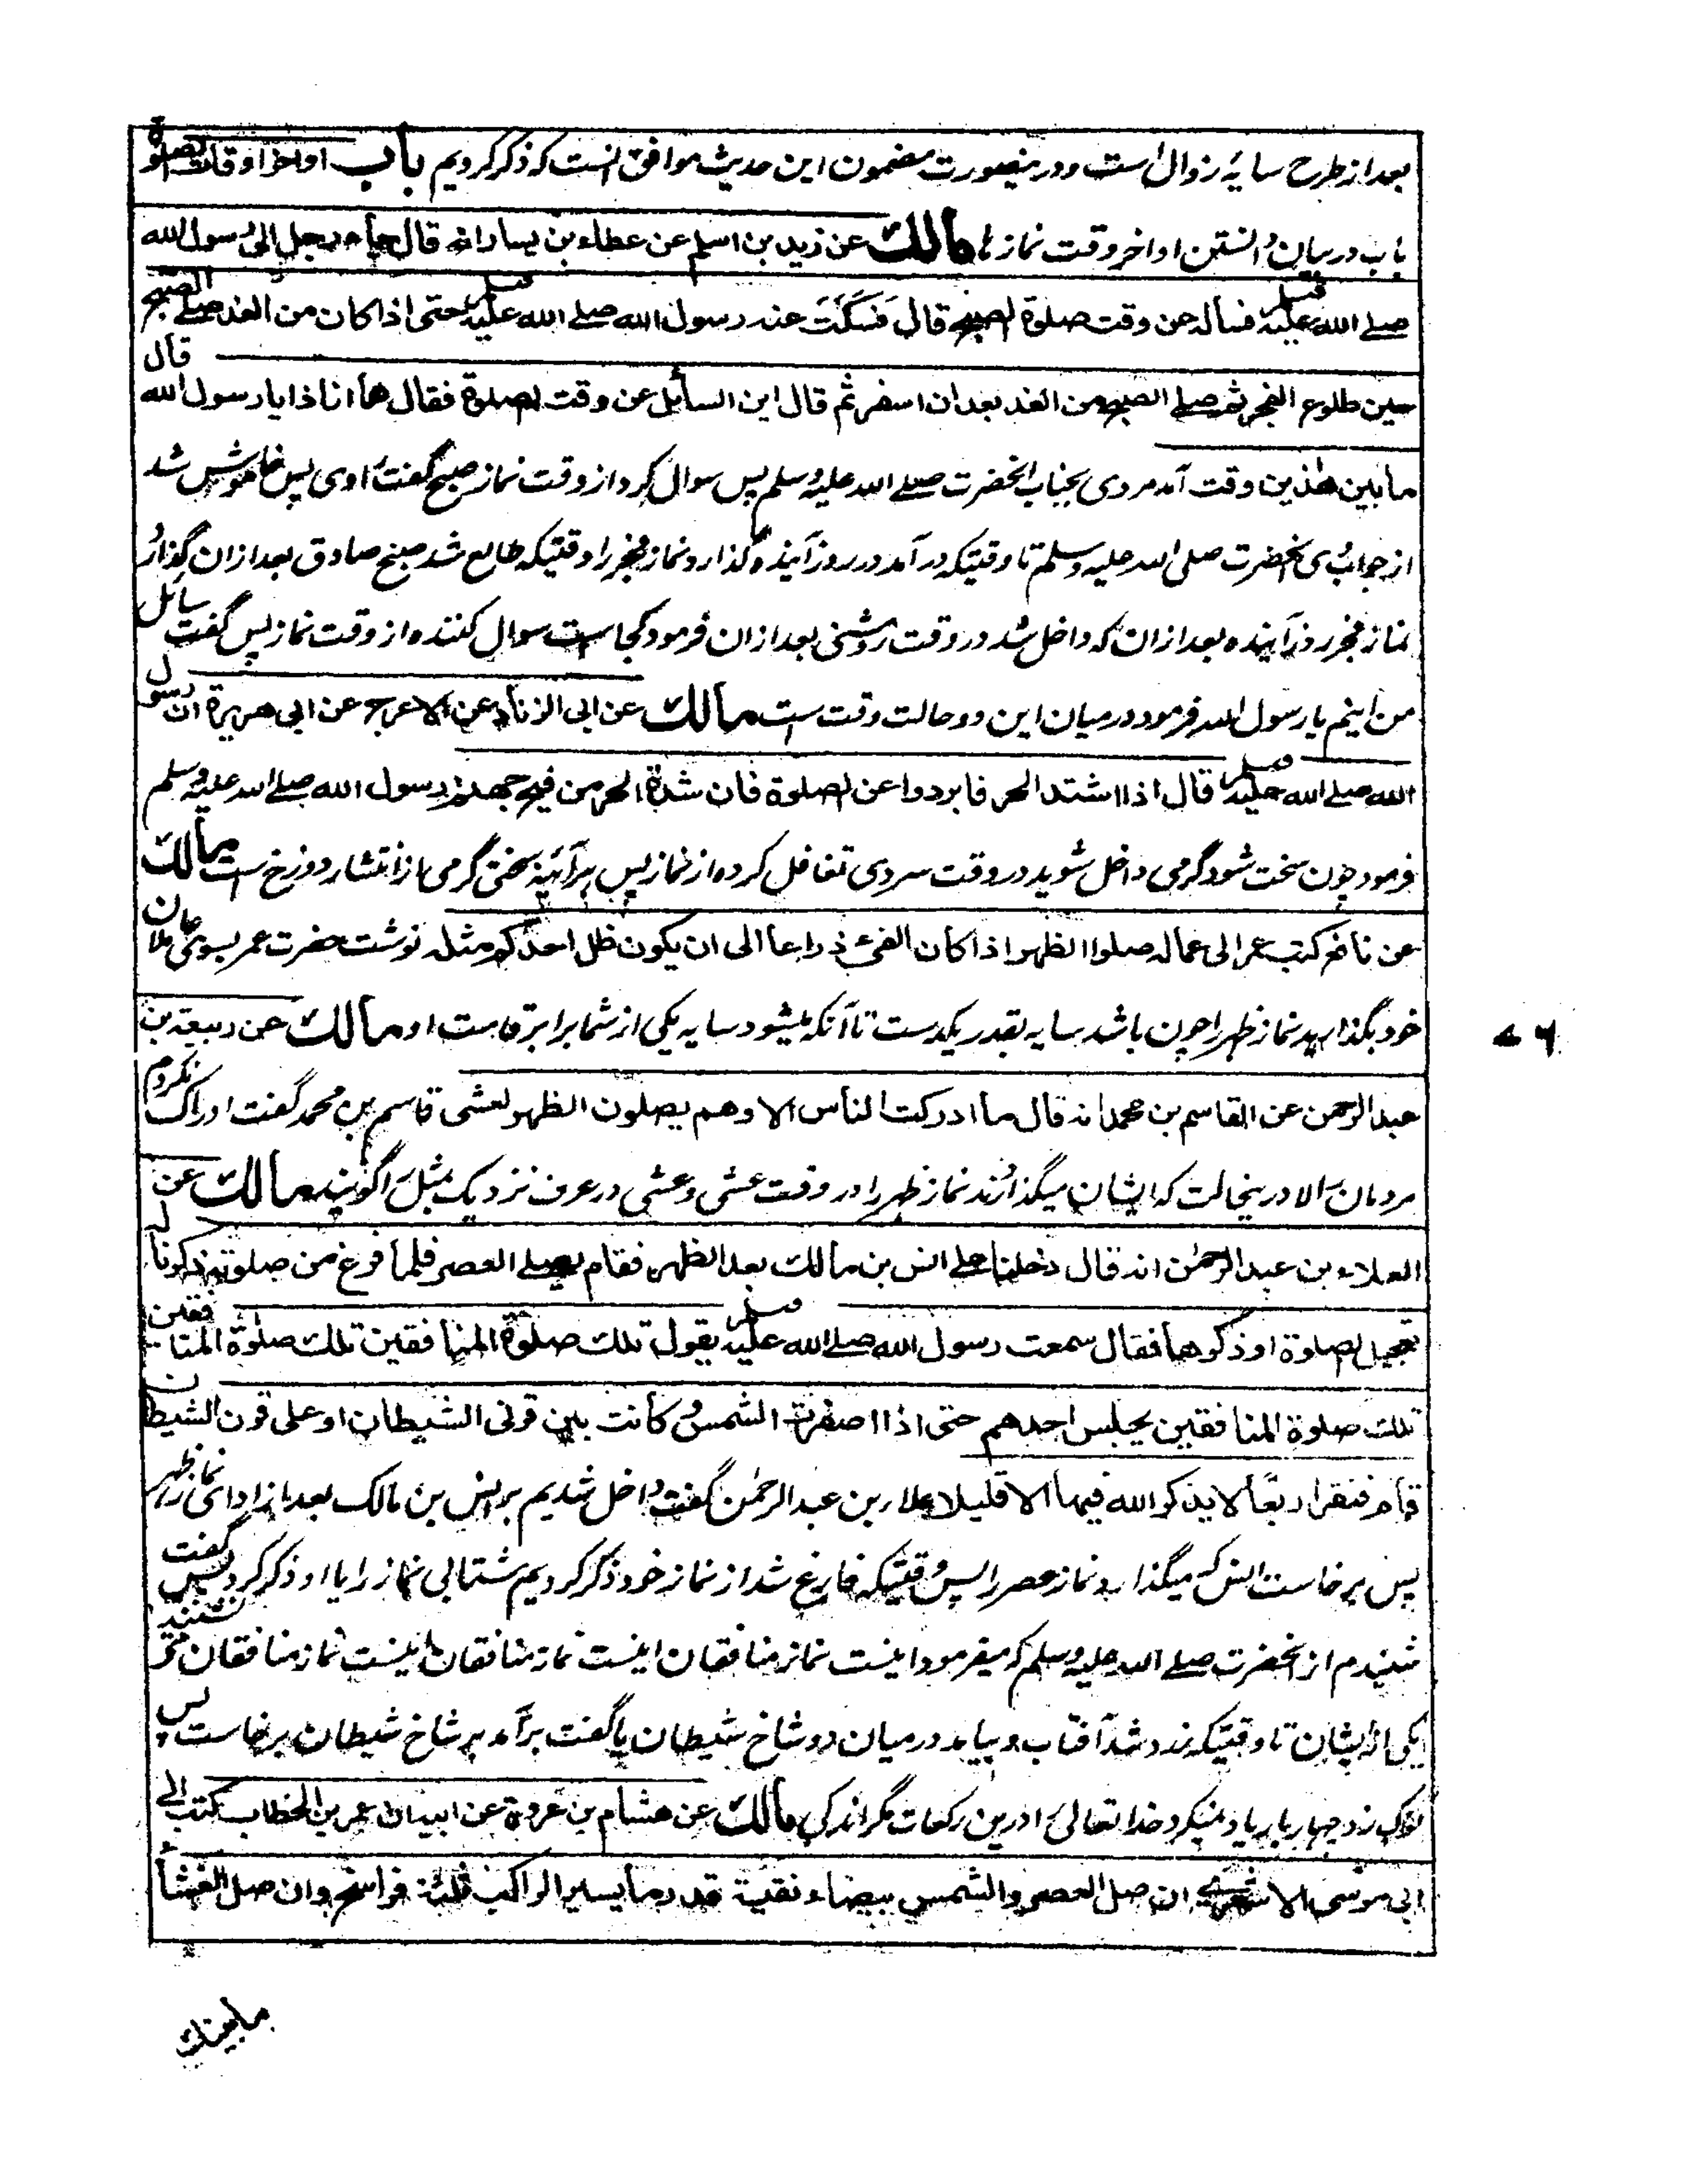 بعد از طرح سایۀ زوال است و درینصورت مضمون این حدیث موافق انست که ذکر کردیم باب اواخر اوقات الصلوة
باب دربیان دانستن اواخر وقت نماز ها مالک عن زید بن اسلم عن عطاء بن یسار انه قال جاء رجل الی رسول الله
صلے الله علیه وسلم فسأله عن وقت صلوة الصبح قال فسکت عنه رسول الله صلے الله علیه وسلم حتی اذا کان من الغد صلے الصبح
حین طلوع الفجر ثم صلے الصبح من الغد بعد ان اسفر ثم قال این السائل عن وقت الصلوة فقال ها انا ذا یا رسول الله قال
ما بین هذین وقت آمد مردی بجناب آنحضرت صلے الله علیه وسلم پس سوال کرد از وقت نماز صبح گفت راوی پس خاموش شد
از جواب وی آنحضرت صلی الله علیه وسلم تا وقتیکه در آمد در روز آینده گذارد نماز فجر را وقتیکه طالع شد صبح صادق بعد ازان گذارد
نماز فجر روز آینده بعد ازان که داخل شد در وقت روشنی بعد ازان فرمود کجا است سوال کننده از وقت نماز پس گفت سائل
من اینم یا رسول الله فرمود درمیان این دو حالت وقت ست مالک عن ابی الزناد عن الاعرج عن ابی هریرة ان رسول
الله صلے الله علیه وسلم قال اذا اشتد الحر فابردوا عن الصلوة فان شدة الحر من فیح جهنم رسول الله صلے الله علیه وسلم
فرمود چون سخت شود گرمی داخل شوید در وقت سردی تغافل کرده از نماز پس هرآئینه سختی گرمی از انتشار دوزخ ست مالک
عن نافع کتب عمر الی عماله صلوا الظهر اذا کان الفیء ذراعا الی ان یکون ظل احدکم مثله نوشت حضرت عمر بسوی عاملان
خود بگذارید نماز ظهر را چون باشد سایه بقدر یکدست تا آنکه بشود سایه یکی از شما برابر قامت او مالک عن ربیعة بن
عبد الرحمن عن القاسم بن محمد انه قال ما ادرکت الناس الا وهم یصلون الظهر بعشی قاسم بن محمد گفت ادراک نکردم
مردمان را الا درینحالت که ایشان میگذارند نماز ظهر را در وقت عشی و عشی در عرف نزدیک بمثل را گویند مالک عن
العلاء بن عبد الرحمن انه قال دخلنا علے انس بن مالک بعد الظهر فقام یصلے العصر فلما فرغ من صلوته ذکرنا له
تعجیل الصلوة او ذکرها فقال سمعت رسول الله صلے الله علیه وسلم یقول تلک صلوة المنافقین تلک صلوة المنافقین
تلک صلوة المنافقین یجلس احدهم حتی اذا اصفرت الشمس و کانت بین قرنی الشیطان او علی قرن الشیطان
قام فنقر اربعا لا یذکر الله فیها الا قلیلا علاء بن عبد الرحمن گفت داخل شدیم بر انس بن مالک بعد از ادای نماز ظهر
پس برخاست انس که میگذارد نماز عصر را پس وقتیکه فارغ شد از نماز خود ذکر کردیم شتابی نماز را یا او ذکر کرد پس گفت
شنیدم از آنحضرت صلے الله علیه وسلم که میفرمود اینست نماز منافقان اینست نماز منافقان اینست نماز منافقان
یکی از ایشان تا وقتیکه زرد شد آفتاب و بیاید درمیان دو شاخ شیطان یا گفت برآمد بر شاخ شیطان برخاست پس
نوک زد چهار بار یاد نمیکرد خدا تعالی را درین رکعات مگر اندکی مالک عن هشام بن عروة عن ابیه ان عمر بن الخطاب کتب الی
ابی موسی الاشعری ان صل العصر والشمس بیضاء نقیة قدر ما یسیر الراکب ثلثة فراسخ وان صل العشاء